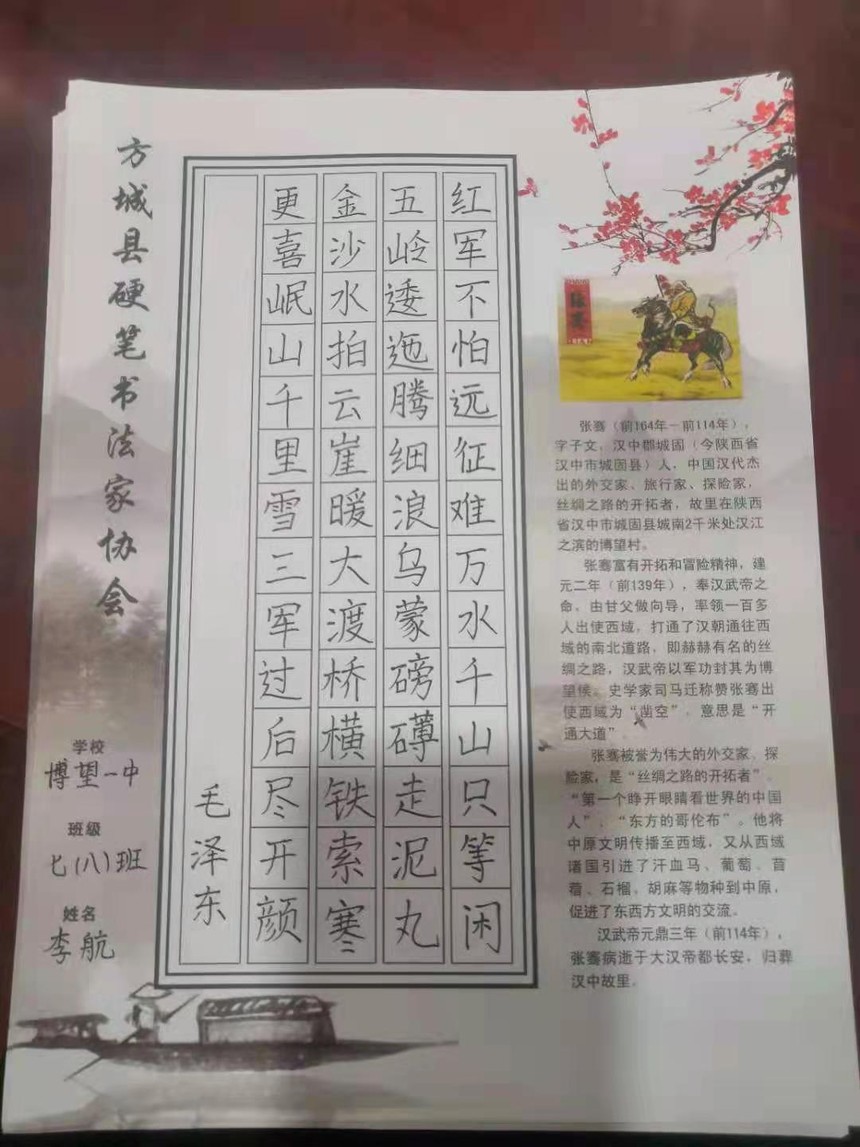 方城县硬笔书法家协会
红军不怕远征难万水千山只等闲
五岭逶迤腾细浪乌蒙磅礴走泥丸
金沙水拍云崖暖大渡桥横铁索寒
更喜岷山千里雪三军过后尽开颜
毛泽东
学校
博望一中
班级
七(八)班
姓名
李航
张骞
张骞（前164年－前114年），
字子文，汉中郡城固（今陕西省
汉中市城固县）人，中国汉代杰
出的外交家、旅行家、探险家，
丝绸之路的开拓者，故里在陕西
省汉中市城固县城南2千米处汉江
之滨的博望村。
张骞富有开拓和冒险精神，建
元二年（前139年），奉汉武帝之
命，由甘父做向导，率领一百多
人出使西域，打通了汉朝通往西
域的南北道路，即赫赫有名的丝
绸之路，汉武帝以军功封其为博
望候。史学家司马迁称赞张骞出
使西域为“凿空”，意思是“开
通大道”。
张骞被誉为伟大的外交家、探
险家，是“丝绸之路的开拓者”、
“第一个睁开眼睛看世界的中国
人”、“东方的哥伦布”。他将
中原文明传播至西域，又从西域
诸国引进了汗血马、葡萄、苜
蓿、石榴、胡麻等物种到中原，
促进了东西方文明的交流。
汉武帝元鼎三年（前114年），
张骞病逝于大汉帝都长安，归葬
汉中故里。